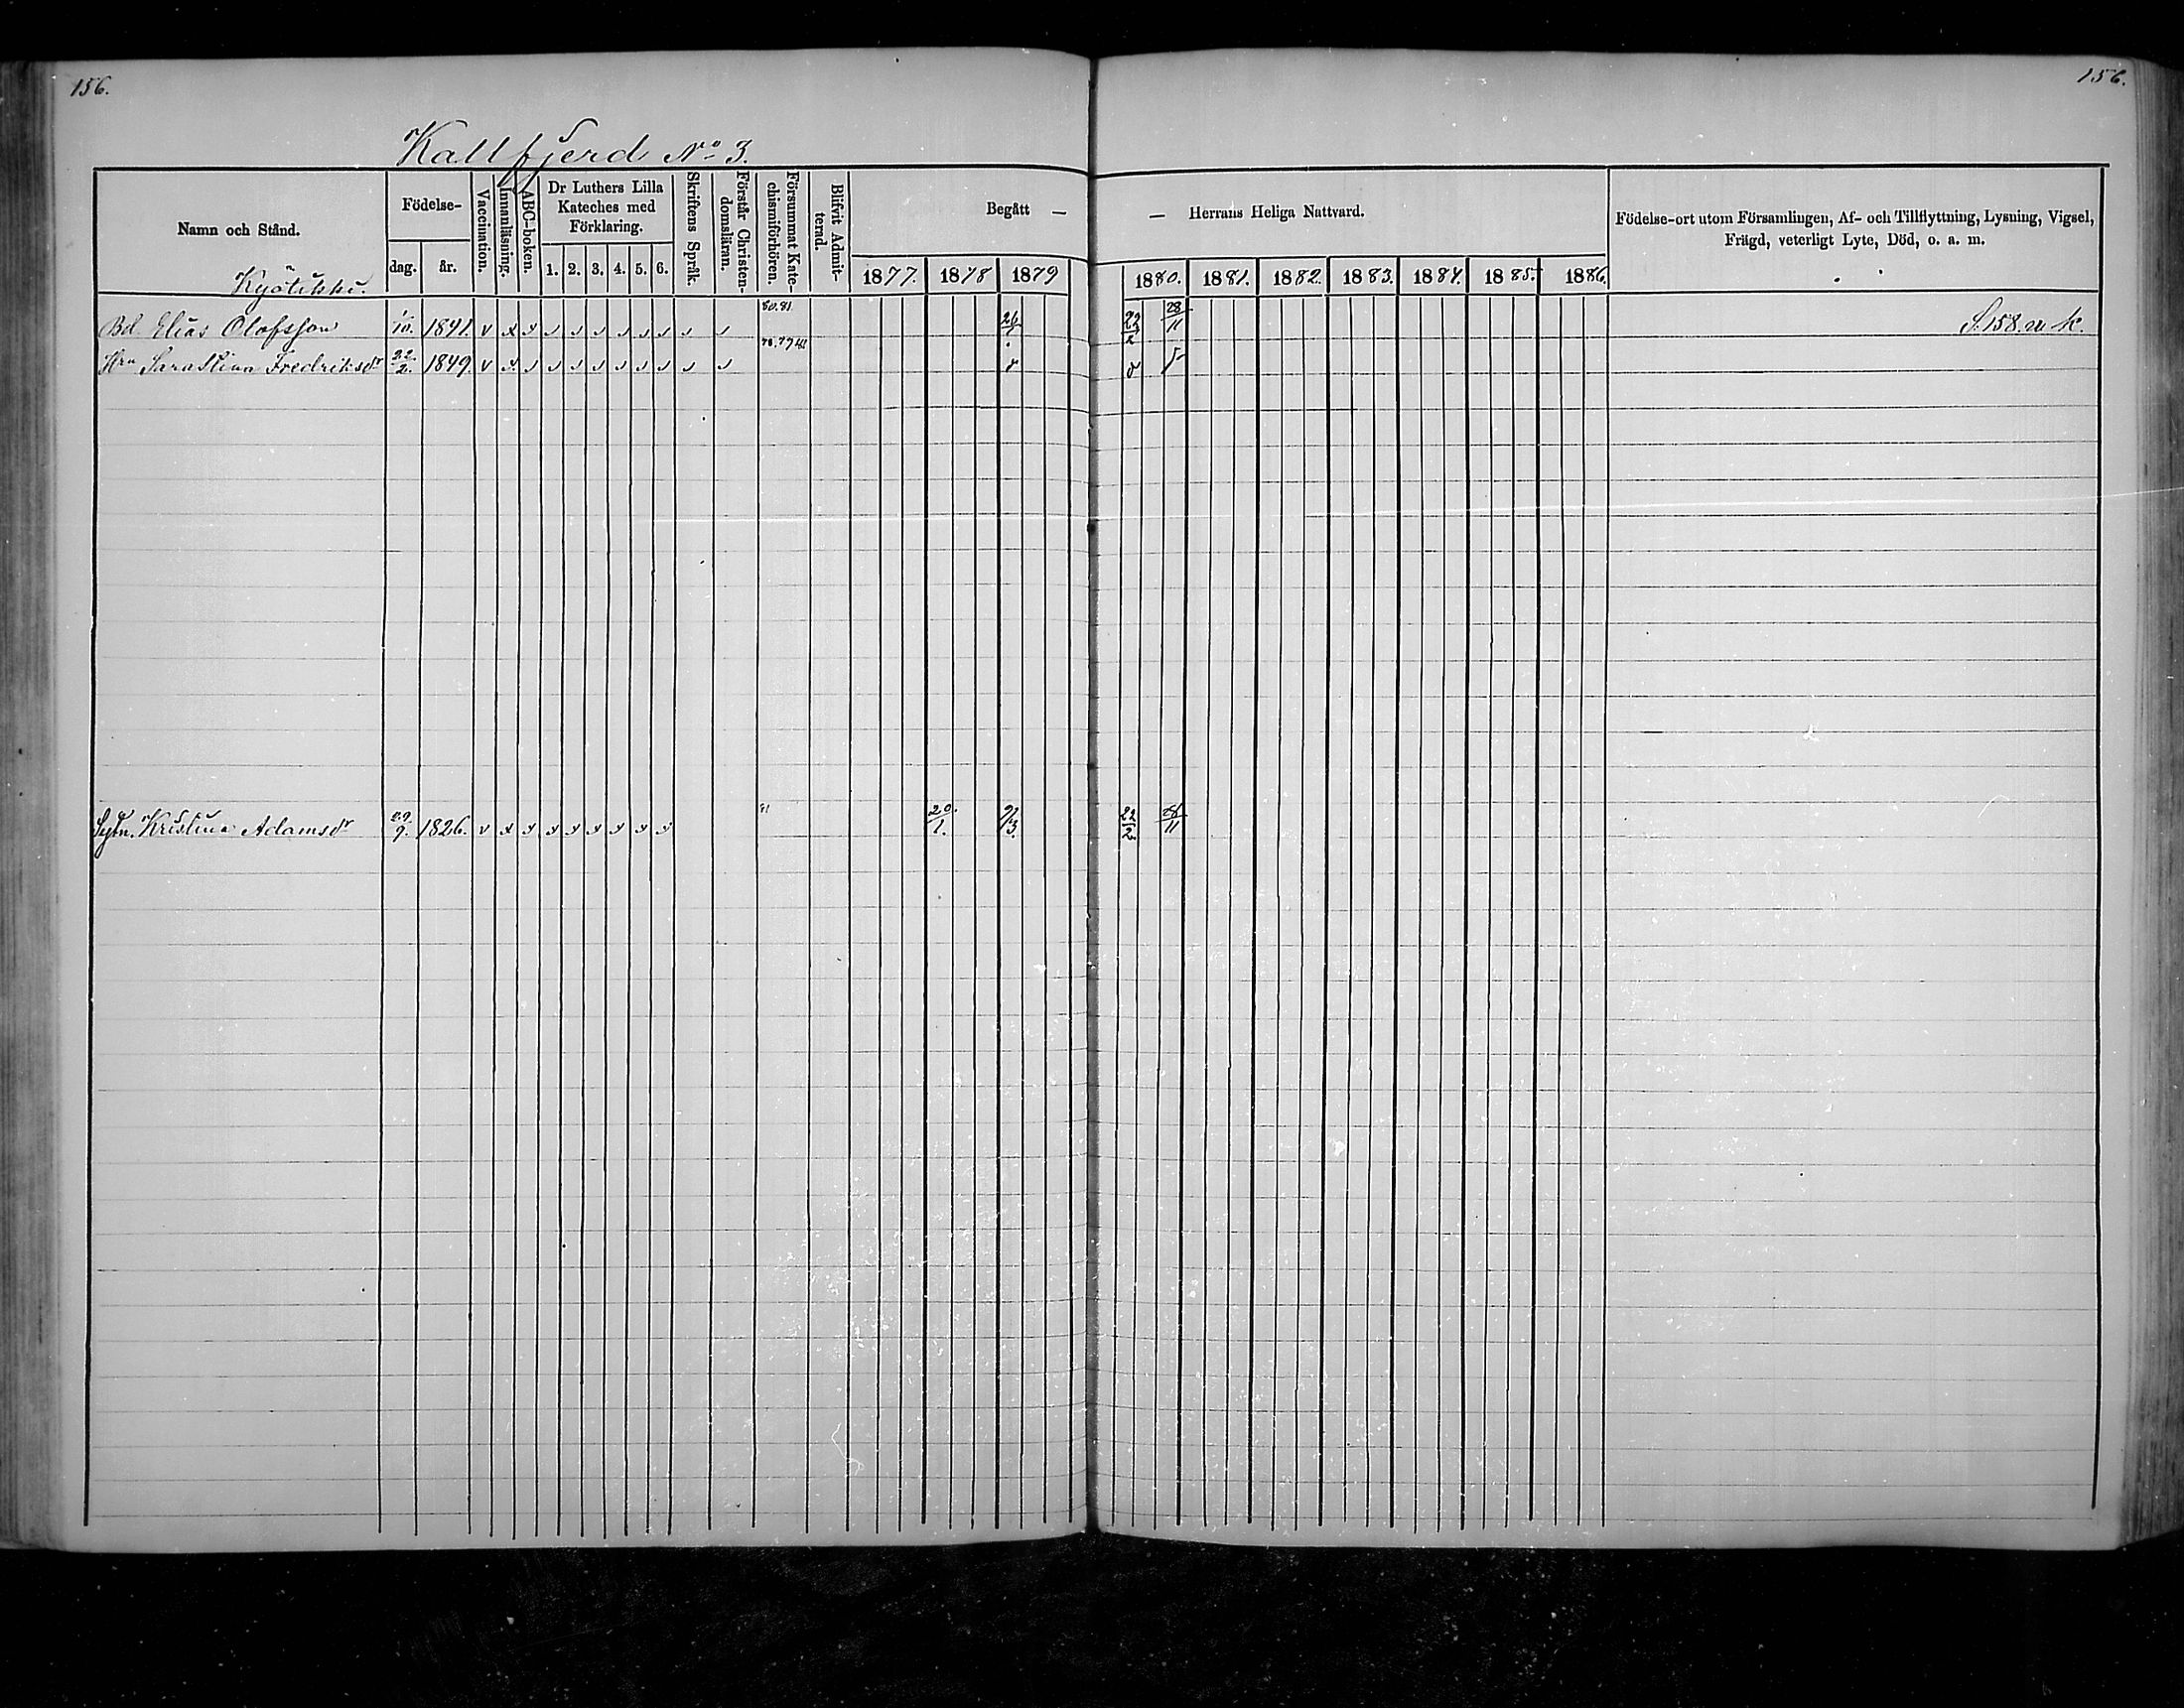 156.
156.
Kallfjerd No 3.
Namn och Stånd.
Födelse-
dag.
år.
Vaccination.
Innanläsning.
ABC-boken.
Dr Luthers Lilla
Kateches med
Förklaring.
1. 2. 3. 4. 5. 6.
Skriftens Språk.
Förstår Christen-
domsläran.
Försummat Kate-
chismiförhören.
Blifvit Admit-
terad.
Begått — — Herrans Heliga Nattvard.
1877. 1878 1879 1880. 1881. 1882. 1883. 1884. 1885. 1886.
Födelse-ort utom Församlingen, Af- och Tillflyttning, Lysning, Vigsel,
Frägd, veterligt Lyte, Död, o. a. m.
Bd. Elias Olofsson 1/10. v 80.81 22/2 28/11 S. 158. n k.
Hru Fredriksdr 22/2. 1849. v
Kristina Adamsdr 29/9. 1826. v 81 20/1. 9/3. 22/2 28/11